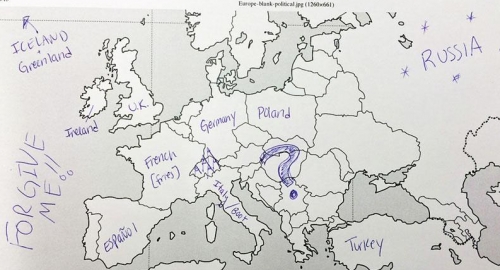 Europe-blank-political.jpg (1260×661)
ICELAND
Greenland
RUSSIA
U.K.
Ireland
Germany
Poland
French
(Fries)
Italy (boot)
ESPAÑOL
Turkey
FORGIVE
ME!!
?